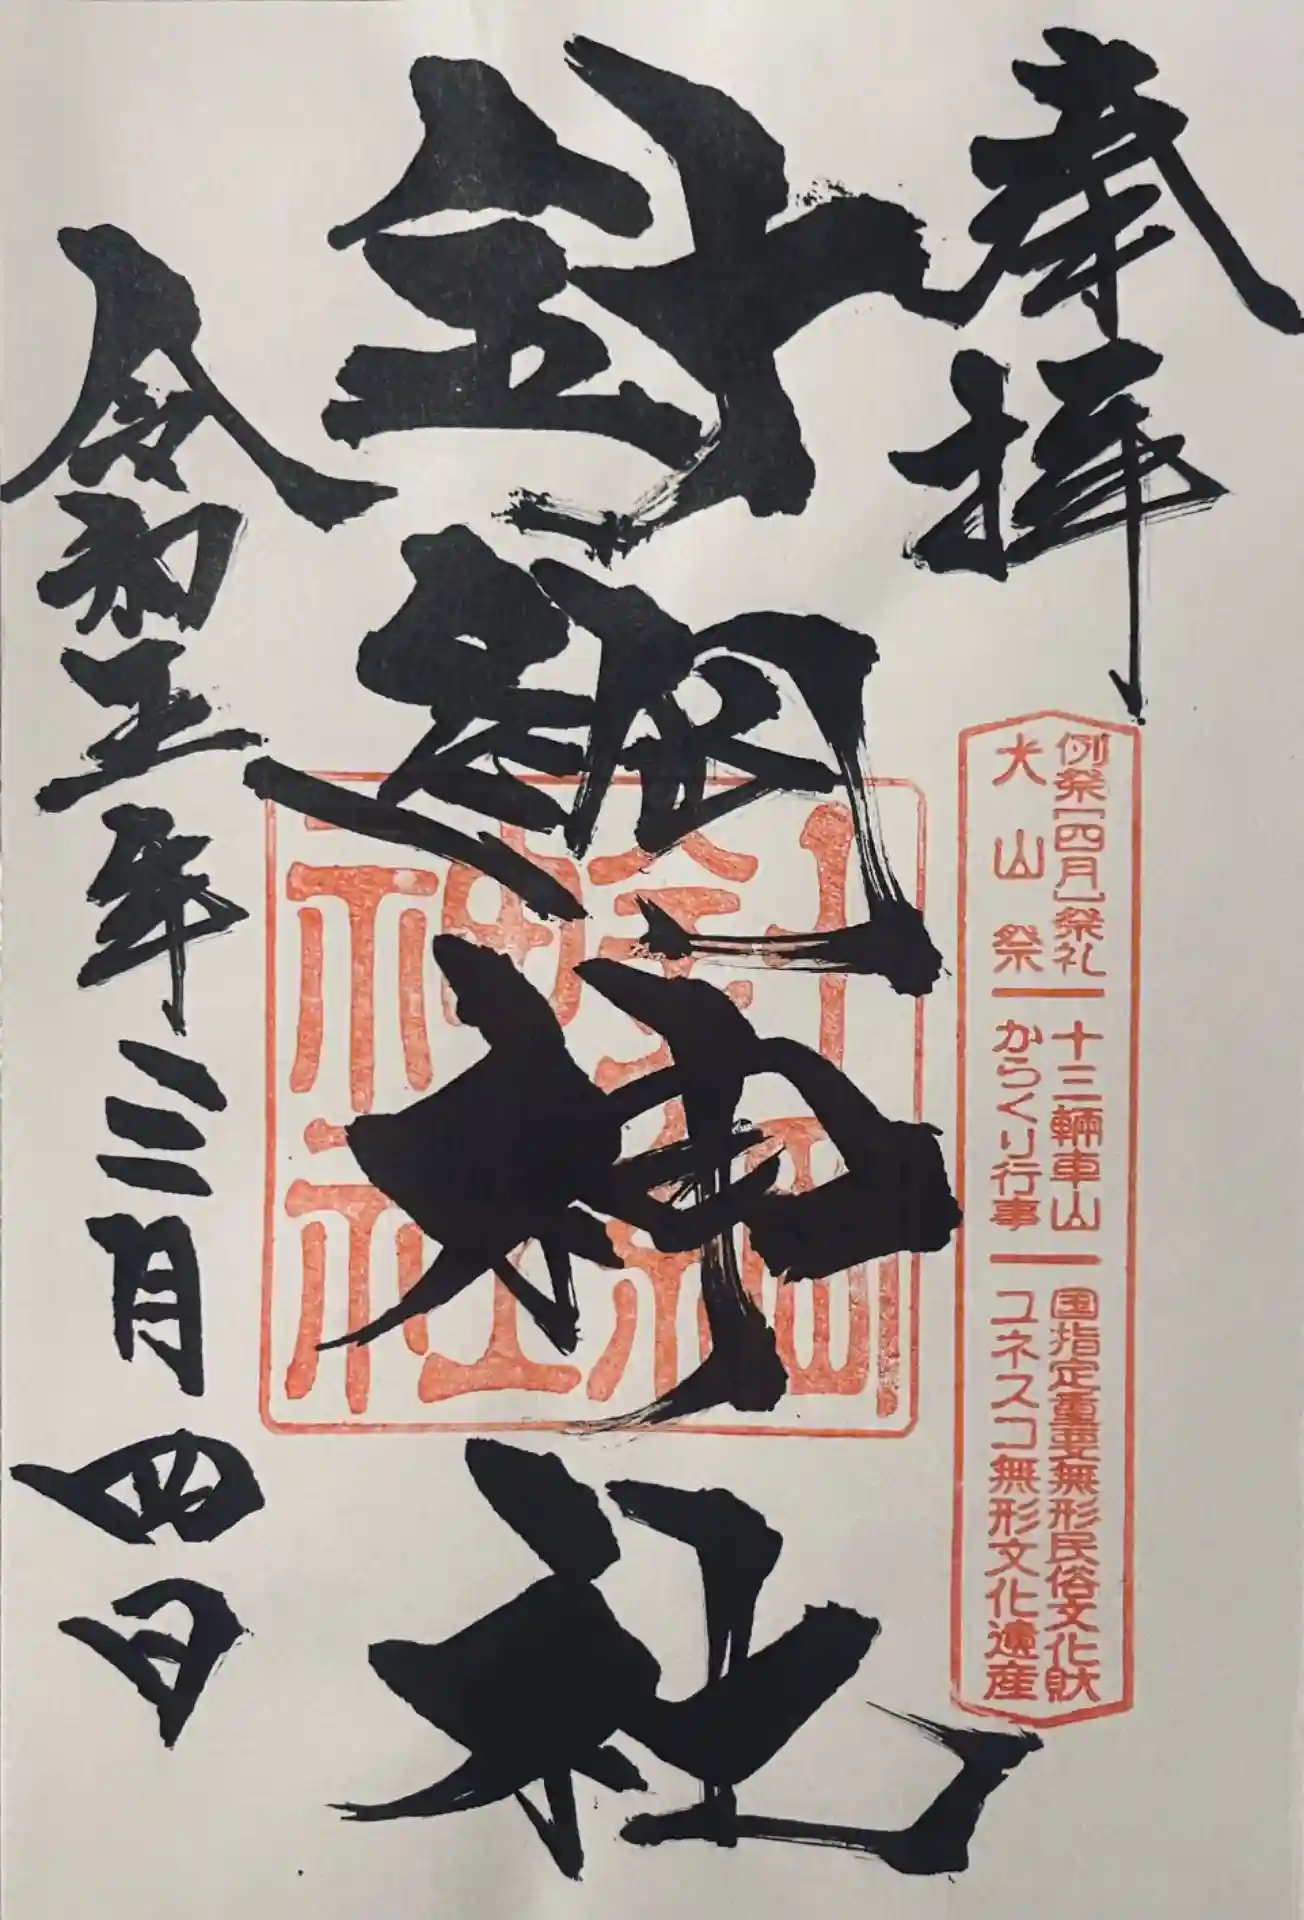 奉拝
例祭[四月]祭礼 十三輛車山 国指定重要無形民俗文化財
犬山祭 からくり行事 ユネスコ無形文化遺産
針綱神社
針綱神社
令和五年三月四日